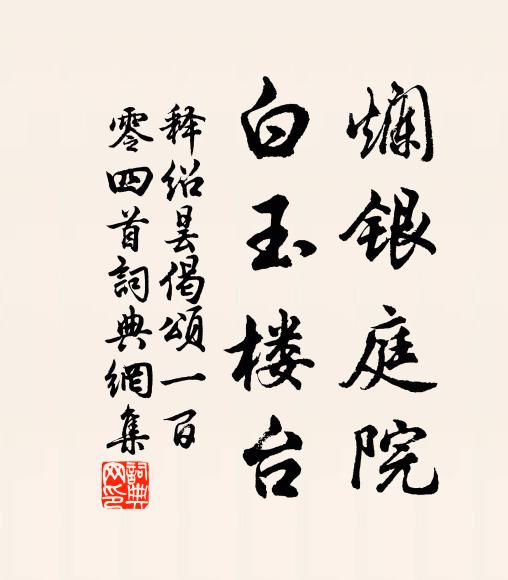 爛銀庭院
白玉楼台
释绍昙偈頌一百
零四首詞典網集
詞典
网印